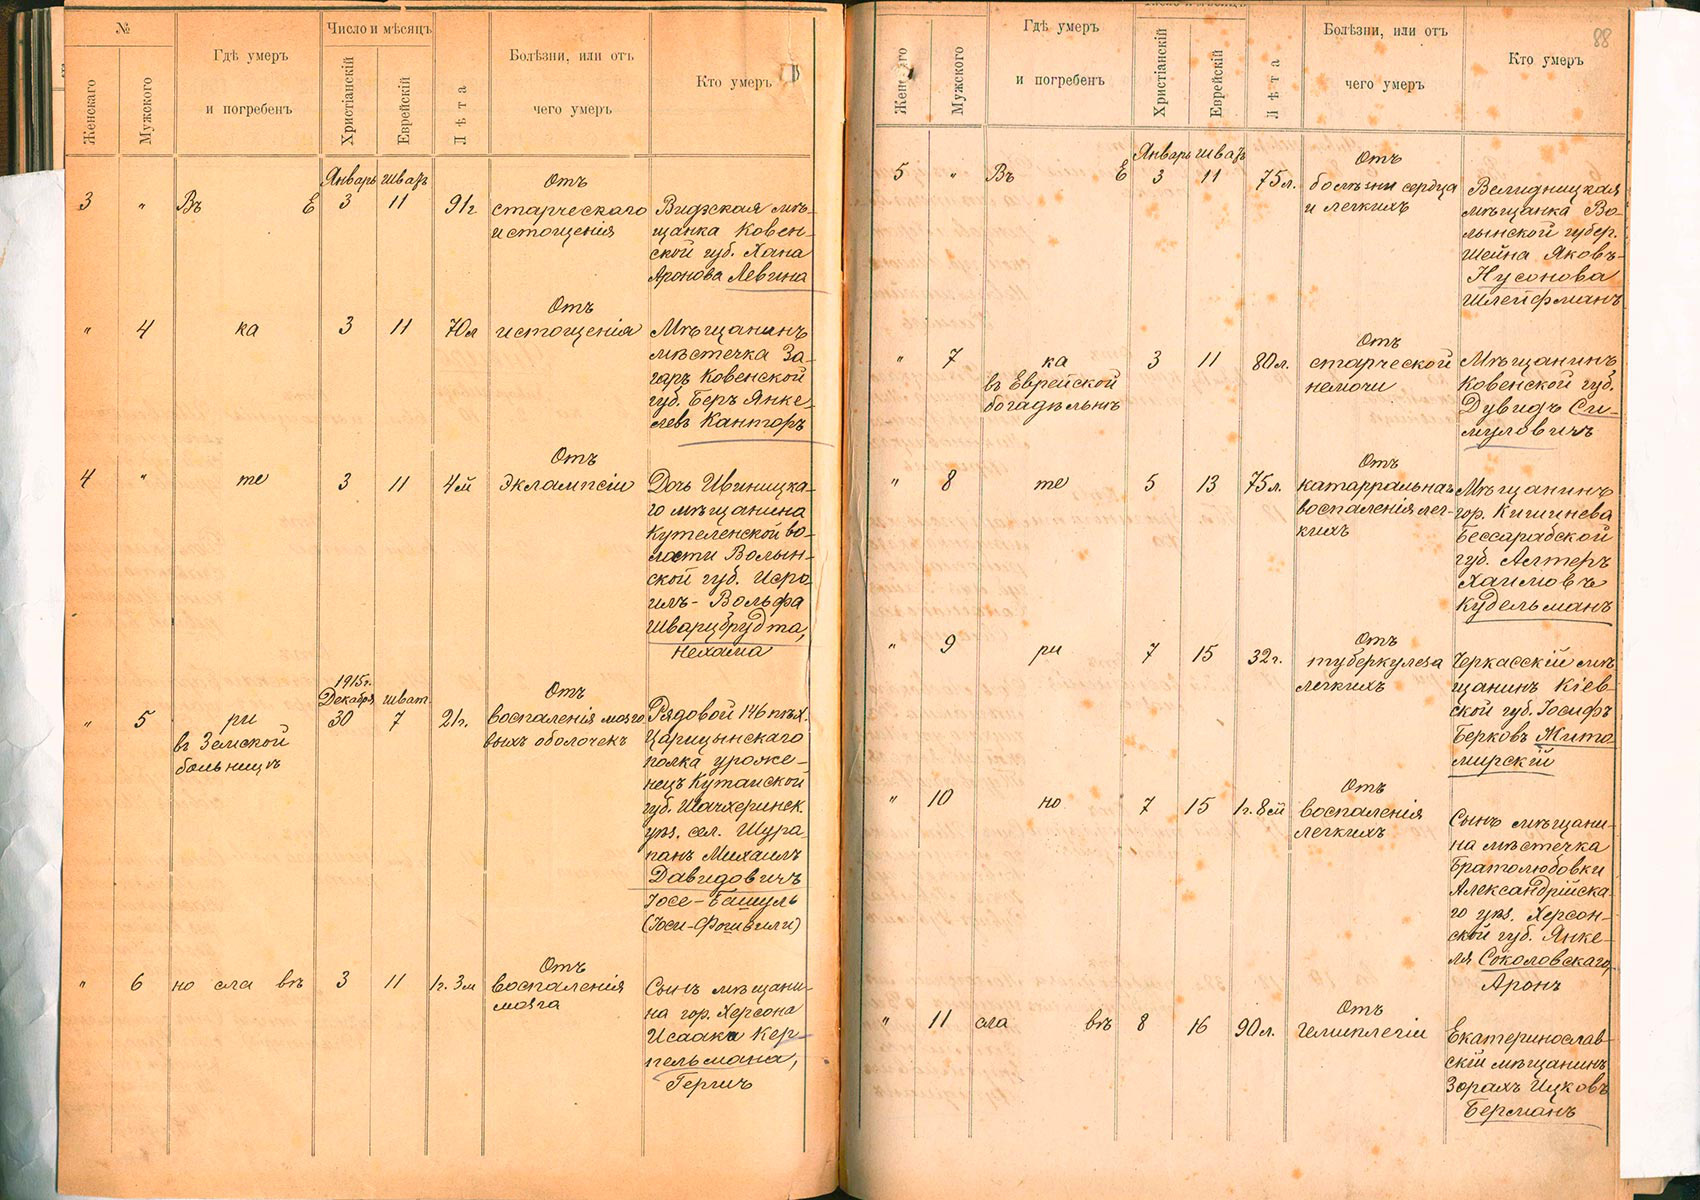 №
Женскаго
Мужского
Гдѣ умеръ
и погребенъ
Число и мѣсяцъ
Христіанскій
Еврейскій
Лѣта
Болѣзни, или отъ
чего умеръ
Кто умеръ
Январь Шватъ
3 " Въ Е 3 11 91г
Отъ
старческаго
истощенія
Видзская мѣ-
щанка Ковен-
ской губ. Хана
Аронова Левина
" 4 ка 3 11 70л
Отъ
истощенія
Мѣщанинъ
мѣстечка За-
гаръ Ковенской
губ. Беръ Янке-
левъ Канторъ
4 " те 3 11 4м
Отъ
эклампсіи
Дочь Ивницка-
го мѣщанина
Кутеленской во-
лости Волын-
ской губ. Исро
илъ-Вольфа
Шварцбрудта,
Нехама
1915г.
Декабря Шват
" 5 ри 30 7 21г.
въ Земской
больницѣ
Отъ
воспаленія мозго
выхъ оболочекъ
Рядовой 146 пѣх.
Царицынскаго
полка уроже-
нецъ Кутаиской
губ. Шачхеринск.
уѣз. сел. Шура
панъ Михаилъ
Давидовичъ
Іосе-Башуль
(Іоси-Фошвили)
" 6 но сла въ 3 11 1г. 3м
Отъ
воспаленія
мозга
Сынъ мѣщани-
на гор. Херсона
Исаака Кер-
пельмана,
Гершъ
88
Число и мѣсяцъ
Женскаго
Мужского
Гдѣ умеръ
и погребенъ
Христіанскій
Еврейскій
Лѣта
Болѣзни, или отъ
чего умеръ
Кто умеръ
Январь Шватъ
5 " Въ Е 3 11 75л.
Отъ
болѣзни сердца
и легкихъ
Веледницкая
мѣщанка Во-
лынской губер.
Шейна Яковъ-
Нусонова
Шлейфманъ
" 7 ка 3 11 80л.
въ Еврейской
богадѣльнѣ
Отъ
старческой
немочи
Мѣщанинъ
Ковенской губ.
Дувидъ Си-
муловичъ
" 8 те 5 13 75л.
Отъ
катарральнаго
воспаленія лег-
кихъ
Мѣщанинъ
гор. Кишинева
Бессарабской
губ. Алтеръ
Хаимовъ
Кудельманъ
" 9 ри 7 15 32г.
Отъ
туберкулеза
легкихъ
Черкасскій мѣ
щанинъ Кіев-
ской губ. Іосифъ
Берковъ Жито
мирскій
" 10 но 7 15 1г. 8м
Отъ
воспаленія
легкихъ
Сынъ мѣщани-
на мѣстечка
Братолюбовки
Александрійска
го уѣз. Херсон-
ской губ. Янке-
ля Соколовскаго,
Аронъ
" 11 сла въ 8 16 90л.
Отъ
гемиплегіи
Екатеринослав-
скій мѣщанинъ
Зорахъ Ицковъ
Берманъ